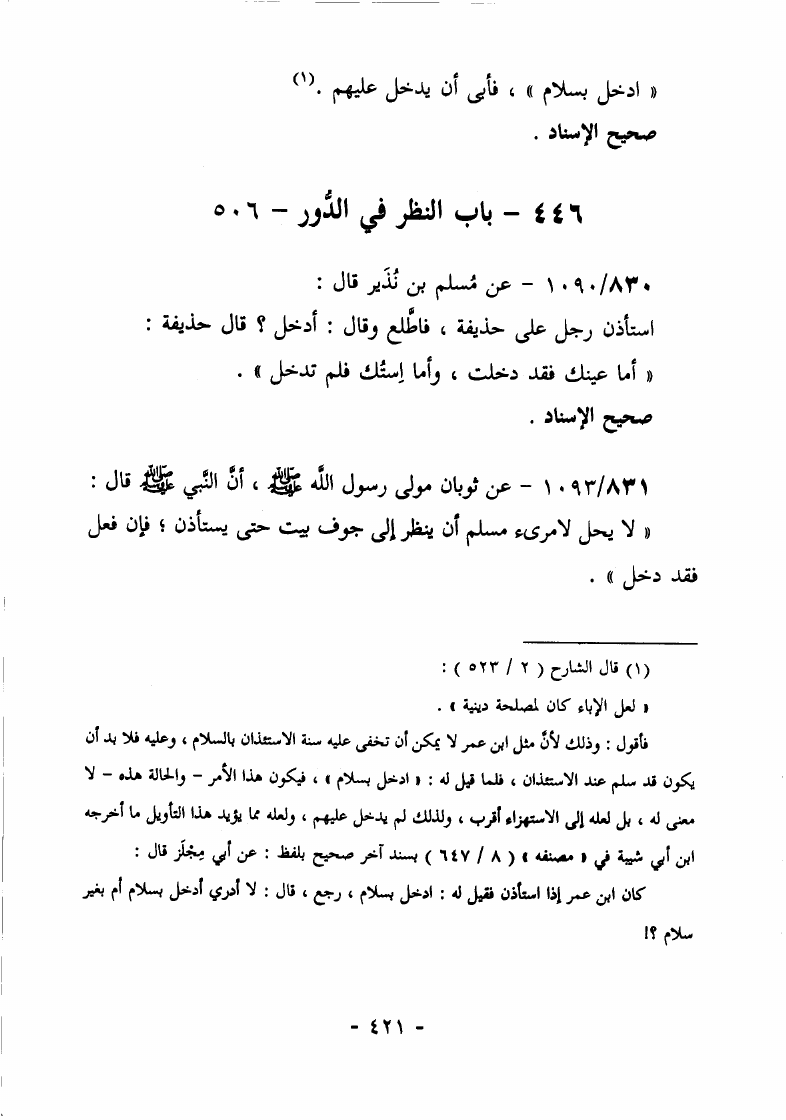 « ادخل بسلام » ، فأبى أن يدخل عليهم .(١)
صحيح الإسناد .
٤٤٦ – باب النظر في الدُّور – ٥٠٦
١٠٩٠/٨٣٠ – عن مُسلم بن نُذَير قال :
استأذن رجل على حذيفة ، فاطَّلع وقال : أدخل ؟ قال حذيفة :
« أما عينك فقد دخلت ، وأما إستُك فلم تدخل » .
صحيح الإسناد .
١٠٩٣/٨٣١ – عن ثوبان مولى رسول اللَّه ﷺ ، أنَّ النَّبي ﷺ قال :
« لا يحل لامرىء مسلم أن ينظر إلى جوف بيت حتى يستأذن ؛ فإن فعل
فقد دخل » .
(١) قال الشارح ( ٢ / ٥٢٣ ) :
« لعل الإباء كان لمصلحة دينية » .
فأقول : وذلك لأنَّ مثل ابن عمر لا يمكن أن تخفى عليه سنة الاستئذان بالسلام ، وعليه فلا بد أن
يكون قد سلم عند الاستئذان ، فلما قيل له : « ادخل بسلام » ، فيكون هذا الأمر – والحالة هذه – لا
معنى له ، بل لعله إلى الاستهزاء أقرب ، ولذلك لم يدخل عليهم ، ولعله مما يؤيد هذا التأويل ما أخرجه
ابن أبي شيبة في « مصنفه » ( ٨ / ٦٤٧ ) بسند آخر صحيح بلفظ : عن أبي مِجْلَز قال :
كان ابن عمر إذا استأذن فقيل له : ادخل بسلام ، رجع ، قال : لا أدري أدخل بسلام أم بغير
سلام ؟!
- ٤٢١ -